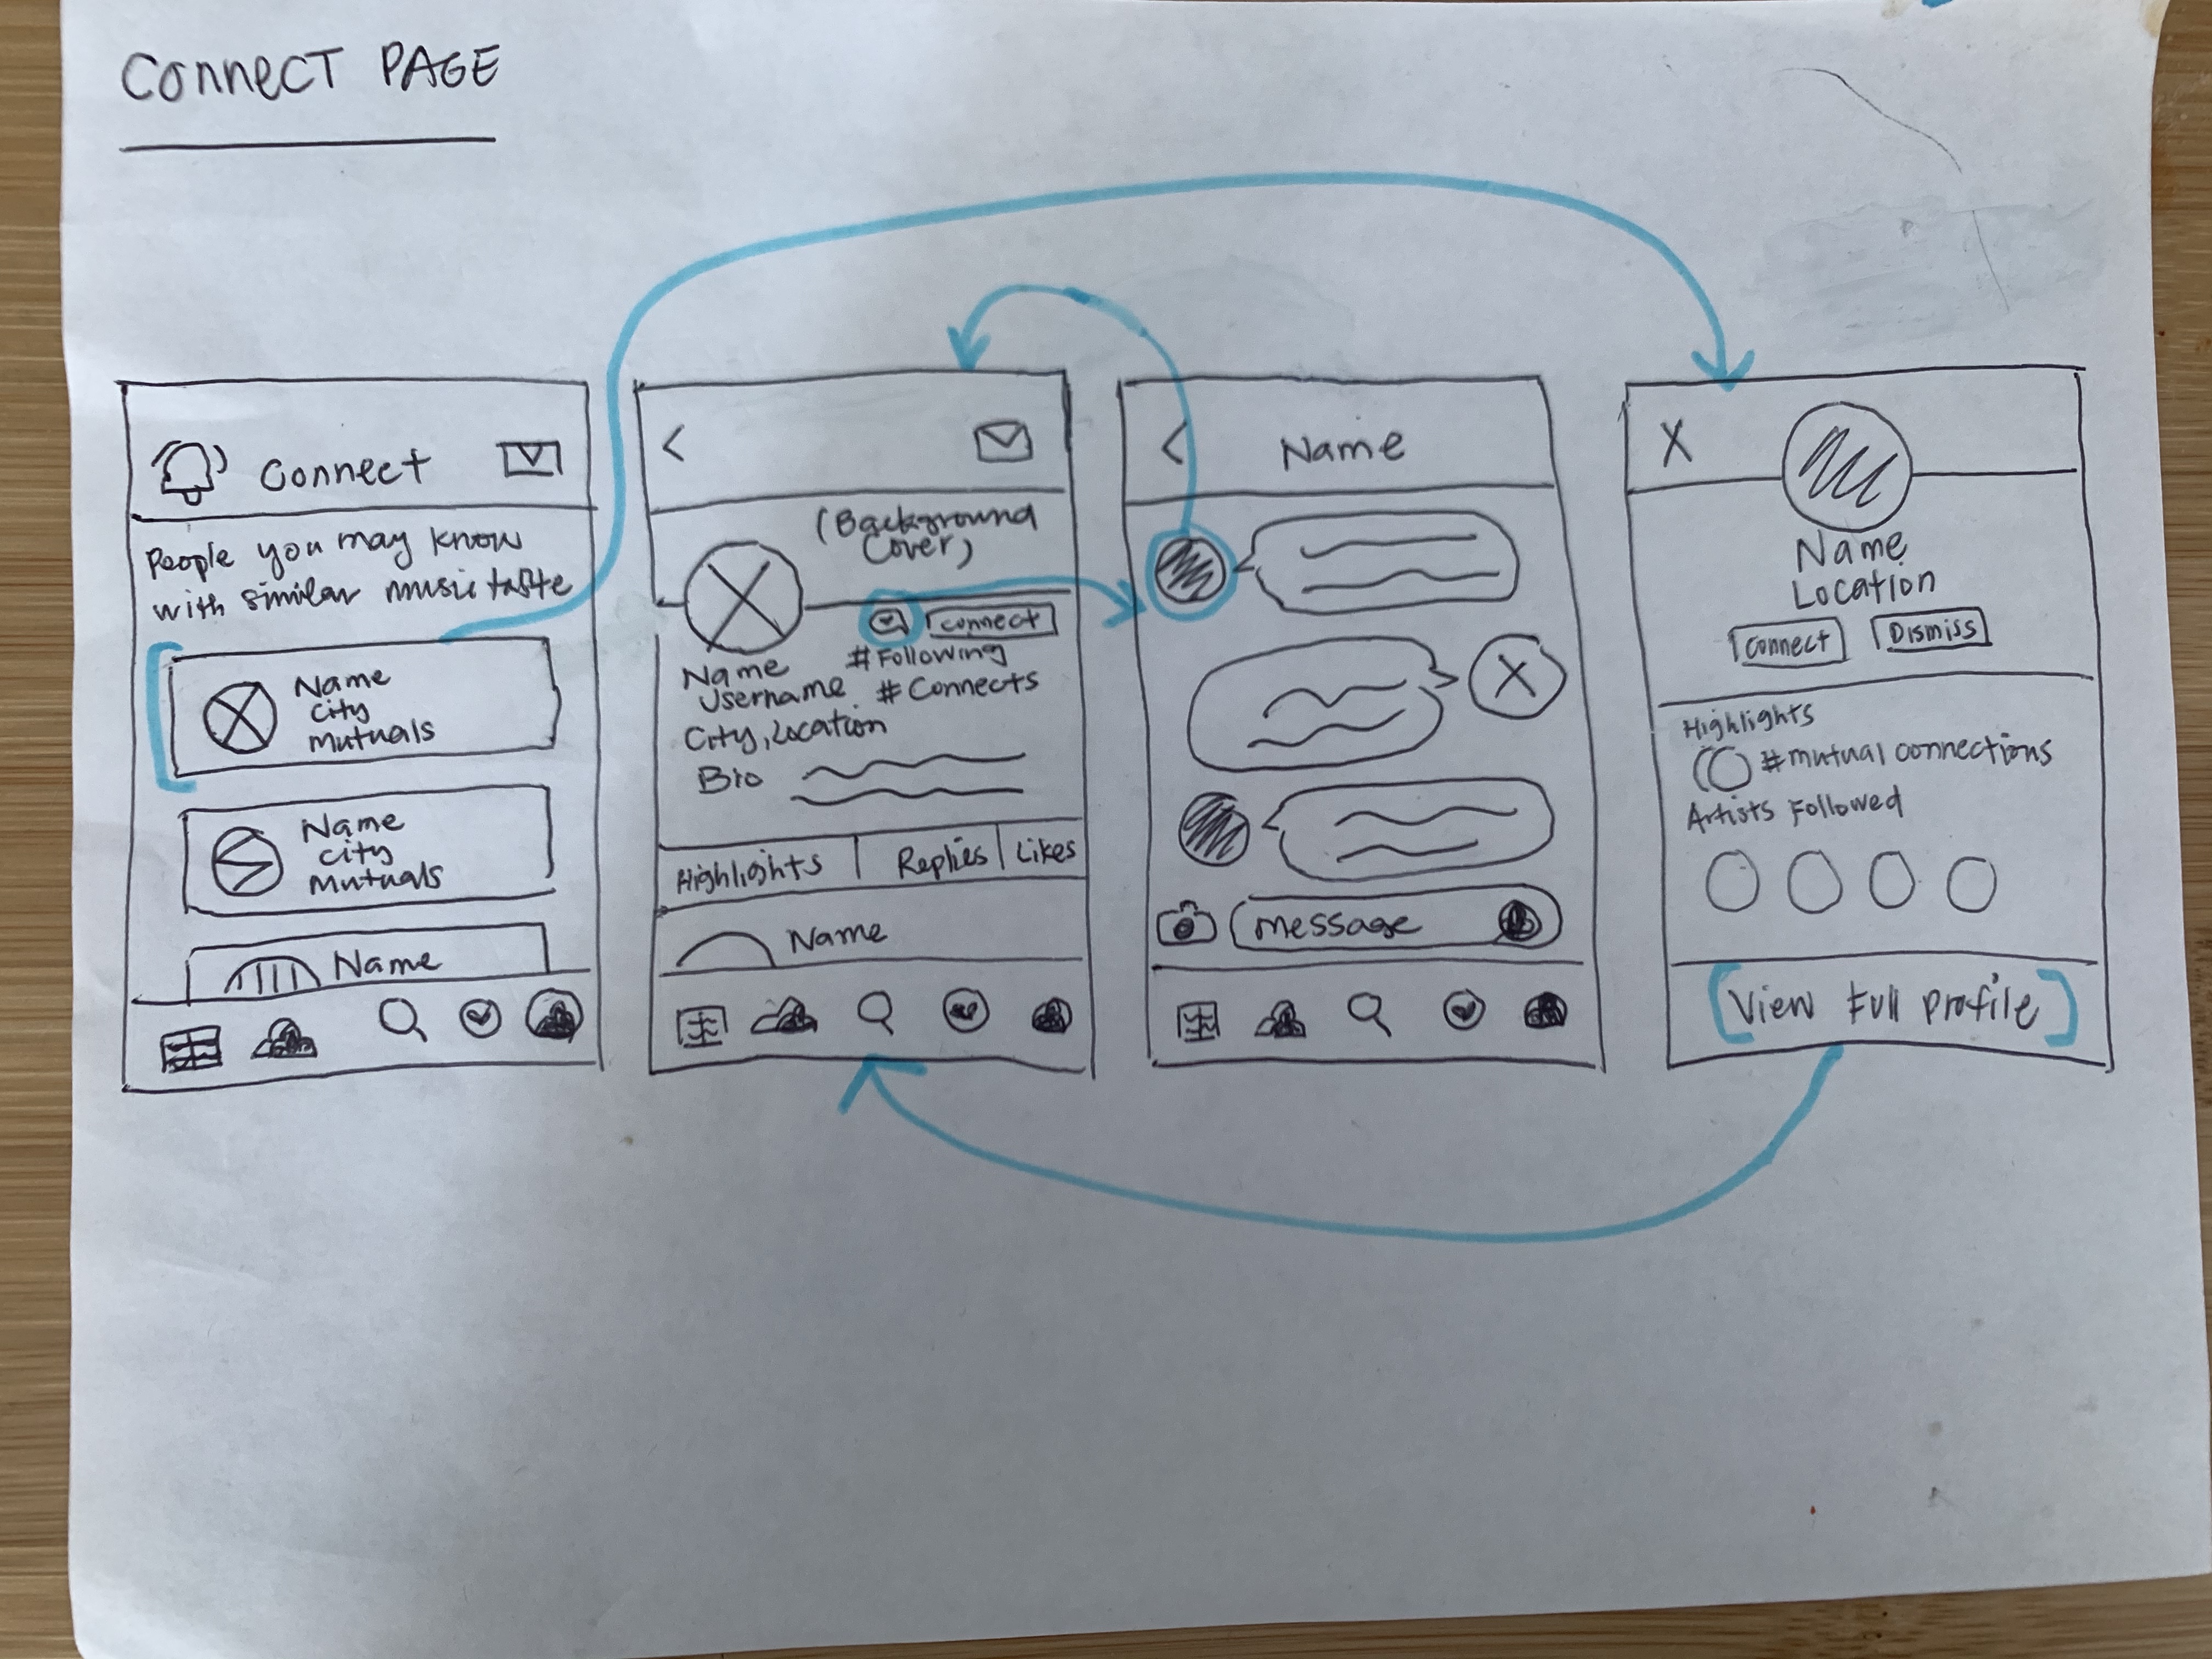 CONNECT PAGE
Connect
People you may know
with similar music taste
Name
City
Mutuals
Name
City
Mutuals
Name
(Background
Cover)
Connect
Name
#Following
Username
#Connects
City, Location
Bio
Highlights
Replies
Likes
Name
Name
Message
X
Name
Location
Connect
Dismiss
Highlights
#mutual connections
Artists Followed
View Full Profile